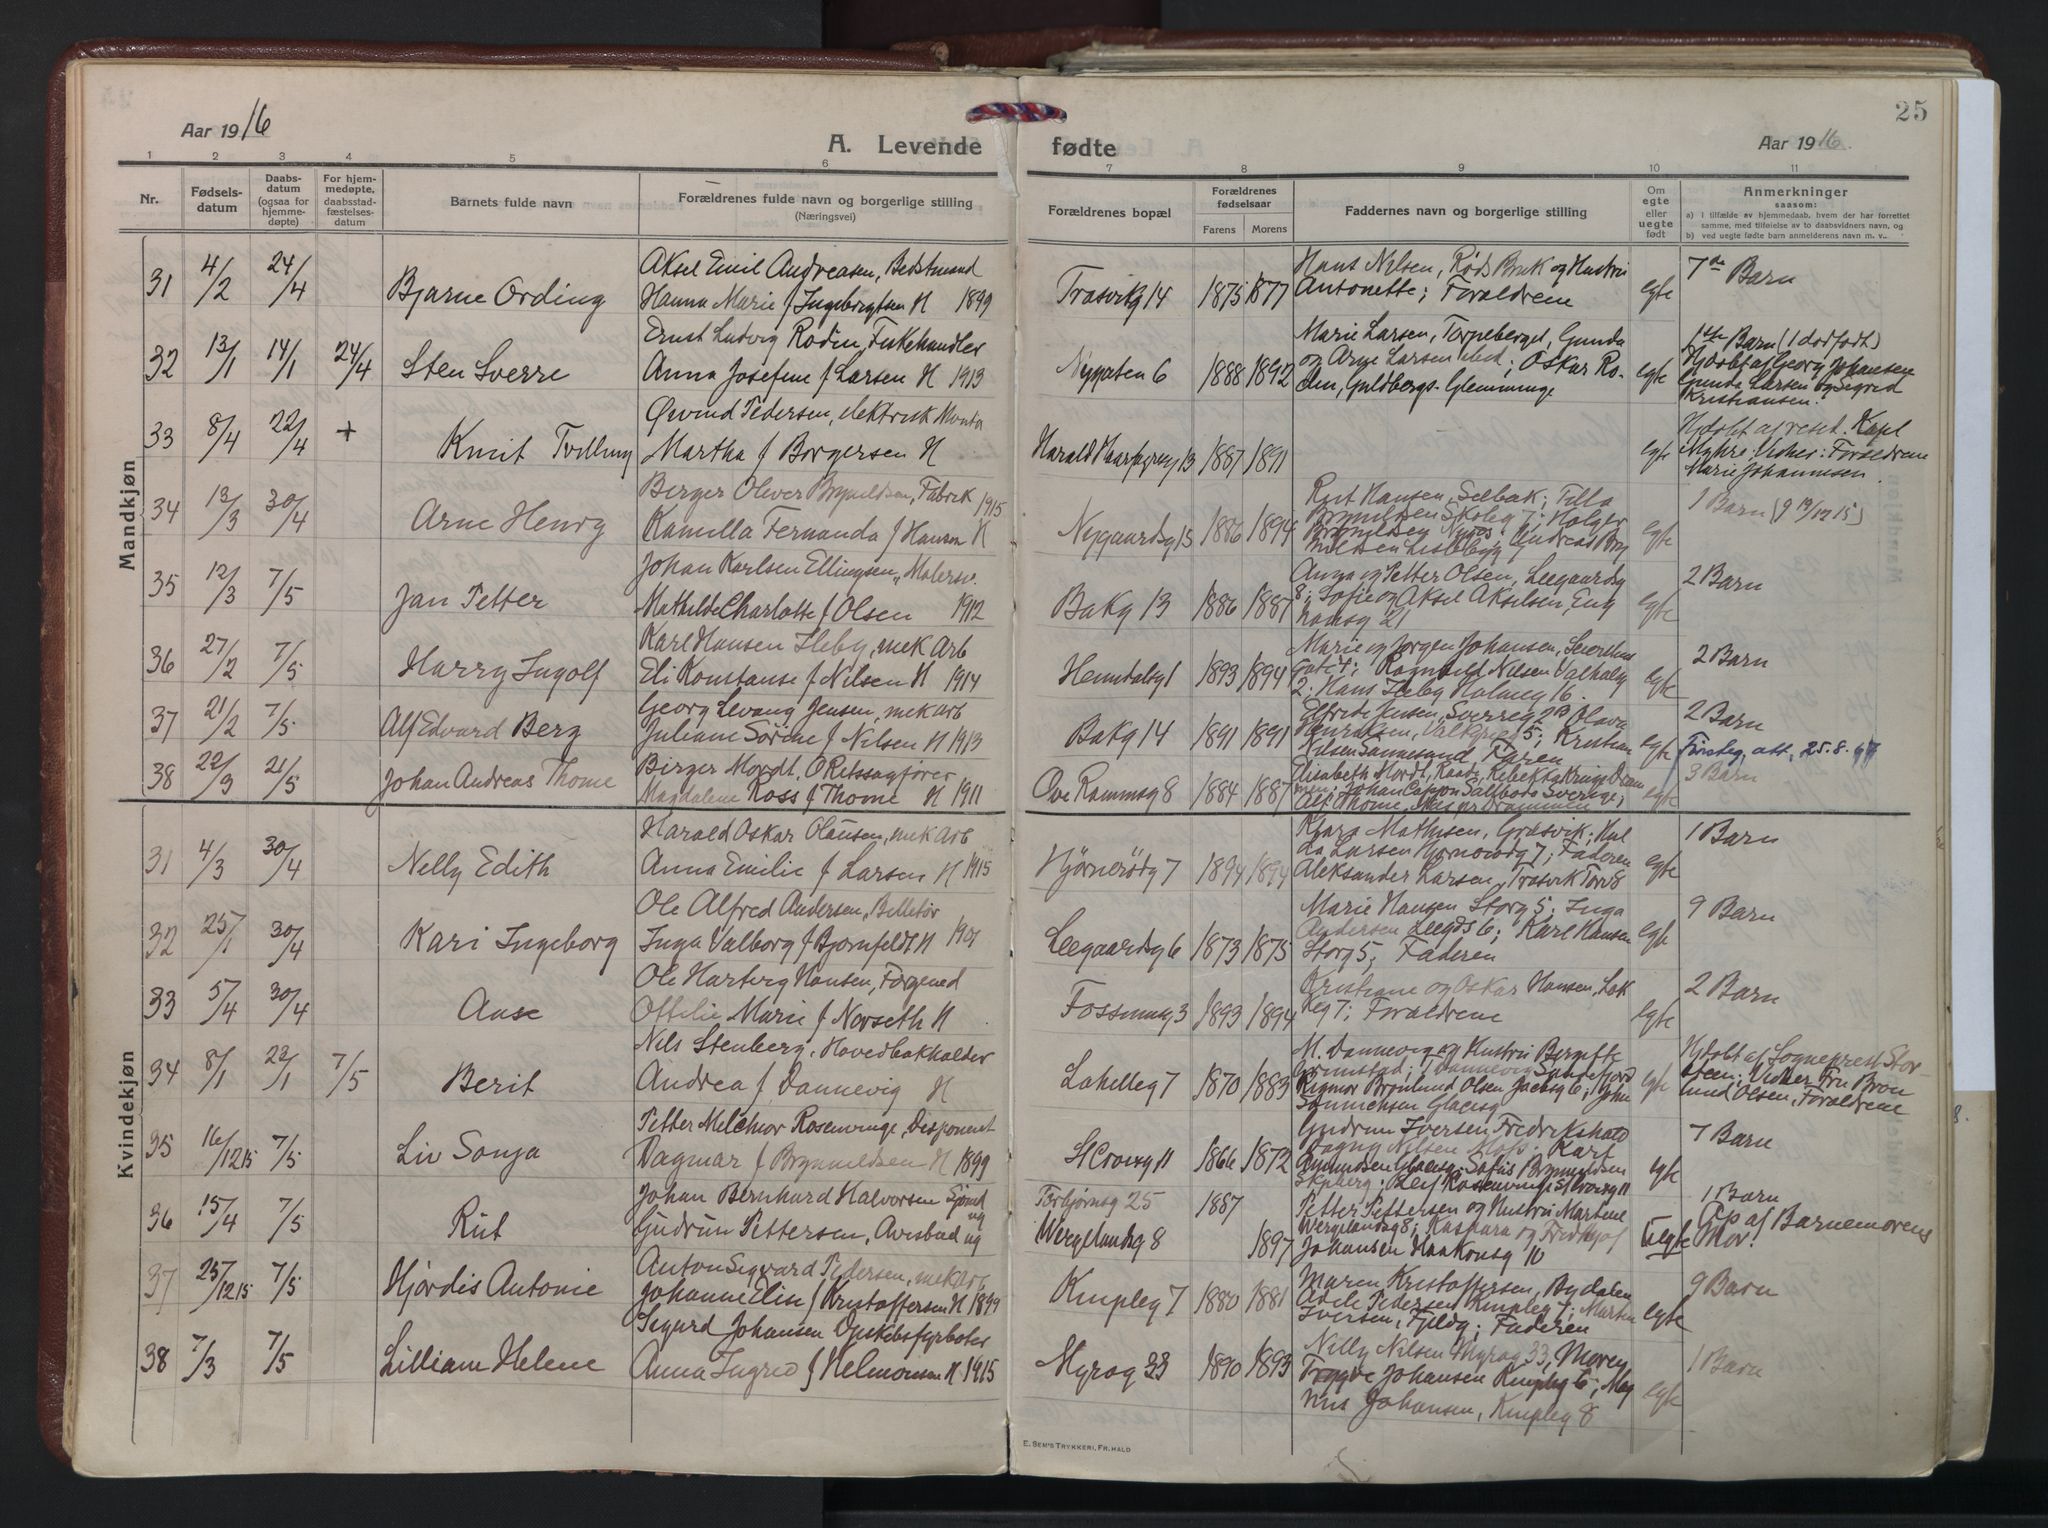 25
Aar 1916
A. Levende fødte
Aar 1916
1 2 3 4 5 6 7 8 9 10 11
Nr.
Fødsels-
datum
Daabs-
datum
(ogsaa for
hjemme-
døpte)
For hjem-
medøpte,
daabsstad-
fæstelses-
datum
Barnets fulde navn
Forældrenes fulde navn og borgerlige stilling
(Næringsvei)
Forældrenes bopæl
Forældrenes
fødselsaar
Farens Morens
Faddernes navn og borgerlige stilling
Om
egte
eller
uegte
født
Anmerkninger
saasom:
a) i tilfælde av hjemmedaab, hvem der har forrettet
samme, med tilføielse av to daabsvidners navn, og
b) ved uegte fødte barn anmelderens navn m. v..
Mandkjøn
31 4/2 24/4 Bjarne Ording
Aksel Emil Andreasen, Bedstmand
Hanna Marie f Ingebrigtsen H 1899
Trosvikg 14 1875 1877
Hans Nilsen, Røds Bruk og Hustru
Antonette; Forældrene
egte 7de Barn
32 13/1 14/1 24/4 Sten Sverre
Ernst Ludvig Rodin, Fiskehandler
Anna Josefine f Larsen H 1913
Nygaten 6 1888 1892
Marie Larsen, Torpeberget, Gunda
og Arne Larsen sted; Oskar Ro-
din, Guldbergs. Glemminge
egte
1ste Barn (1 dødfødt)
Hjdøbt af Georg Johansen
Gunda Larsen og Sigrid
Kristiansen.
33 8/4 22/4 + Knut Tvilling
Øivind Pedersen, elektrisk Montør
Martha f Borgersen H
Harald Haarfagresg 13 1887 1891
egte
Hjdøbt af resid. Kapl
Myhre. Vidner: Forældrene
Marie Johannesen.
34 13/3 30/4 Arne Henry
Birger Oliver Brynildsen, Fabrik 1915
Kamilla Fernanda f Hansen H
Nygaardsg 15 1886 1894
Rut Hansen, Selbak; Tilla
Brynildsen Skoleg 7; Holger
Brynildsen Nyros; Andreas Bry
nildsen Lisleby
egte 1 Barn (g 19/12 15)
35 12/3 7/5 Jan Petter
Johan Karlsen Ellingsen, Malersv.
Mathilde Charlotte f Olsen 1912
Bakg 13 1886 1887
Anna og Petter Olsen, Leegaardsg
8; Sofie og Aksel Akselsen, Eng
homsg 21
egte 2 Barn
36 27/2 7/5 Harry Ingolf
Karl Hansen Ileby, mek Arb
Eli Konstanse f Nilsen H 1914
Hemdalsg 1 1893 1894
Marie og Jørgen Johansen,
gate 4; Ragnhild Nilsen Valhalg
2; Hans Ileby Holmeg 16.
egte 2 Barn
37 21/2 7/5 Alf Edvard Berg
Georg Levang Jensen, mek arb
Juliane Sørine f Nilsen H 1913
Bakg 14 1891 1891
Elfride Jensen, Sverreg 2B, Olava
Henriksen, Valkyrieg 5; Kristian
Nilsen Sannesund, Faren
egte 2 Barn
Første, att, 25.8.47
38 22/3 21/5 Johan Andreas Thome
Birger Mordt, ORetssagfører
Magdalene Ross f Thome H 1911
Ove Rammsg 8 1884 1887
Elisabeth Mordt, Raade, Rebekka Kriup Dram
men; Johan Cappon Saltboda Sverige;
Alf Thome, Drammen
egte 3 Barn
Kvindekjøn
31 4/3 30/4 Nelly Edith
Harald Oskar Olausen, mek Arb
Anna Emilie f Larsen H 1915
Hjørnerødg 7 1894 1894
Klara Mathisen, Gresvik; Hul
da Larsen Hjørnerødg 7; Faderen
Aleksander Larsen, Trosvik Torv 8
egte 1 Barn
32 25/1 30/4 Kari Ingeborg
Ole Alfred Andersen, Billetør
Inga Valborg f Bjornfeldt H 1901
Leegaardsg 6 1873 1875
Marie Hansen Storg 5; Inga
Andersen Leegds 6; Karl Hansen
Storg 5; Faderen
egte 9 Barn
33 5/4 30/4 Aase
Ole Hartvig Hansen,
Ottilie Marie f Norseth H
Fossumsg 3 1893 1894
Kristiane og Oskar Hansen, Lak
keg 7; Forældrene
egte 2 Barn
34 8/1 23/1 7/5 Berit
Nils Stenberg, Hovedbokholder
Andrea f Dannevig H
Lakelleg 7 1870 1883
M. Dannevig og Hustru Bergitte
Grimstad; J Dannevig Sandefjord
Rigmor Brønlund Olsen Jacobsg 6; John
Sønnichsen Glacisg
egte
Hjdøbt af Sogneprest Stor-
steen; Vidner Fru Brøn
lund Olsen, Forældrene
35 16/12 15 7/5 Liv Sonja
Petter Melchior Rosenvinge, Disponent
Dagmar f Brynildsen H 1899
St Croixg 11 1866 1872
Gudrun Iversen Fredrikshald
Dagny Nilsen Moss; Karl
Amundsen Glacisg; Sofus Brynildsen
Skjeberg; Leif Rosenvinge St Croixg 11
egte 7 Barn
36 15/4 7/5 Rut
Johan Bernhard Halvorsen Sjømd ug
Gudrun Pettersen, Avisbud ug
Torbjørnsg 25 1887
Wergelandsg 8 1897
Petter Pettersen og Hustru Martine
Wergelandsg 8; Kaspara og Fredthjof
Johansen Haakonsg 10
Uegte
1 Barn
Op af Barnemorens
Mor.
37 25/12 15 7/5 Hjørdis Antonie
Anton Sigvard Pedersen, mek Arb,
Johanne Elise f Kristoffersen H 1899
Kinpleg 7 1880 1881
Maren Kristoffersen, Bydalen
Adele Pedersen Kinpleg 7; Martin
Iversen, Fjeldg; Faderen
egte 9 Barn
38 7/3 7/5 Lilliam Helene
Sigurd Johansen Opskibsfyrbøter
Anna Ingrid f Helmersen H 1915
Myrag 33 1890 1893
Nilly Nilsen Myrag 33, Moren
Trygve Johansen Kinpleg 6; Mag
nus Johansen, Kinpleg 8
egte 1 Barn
E. SEM'S TRYKKERI, FR.HALD